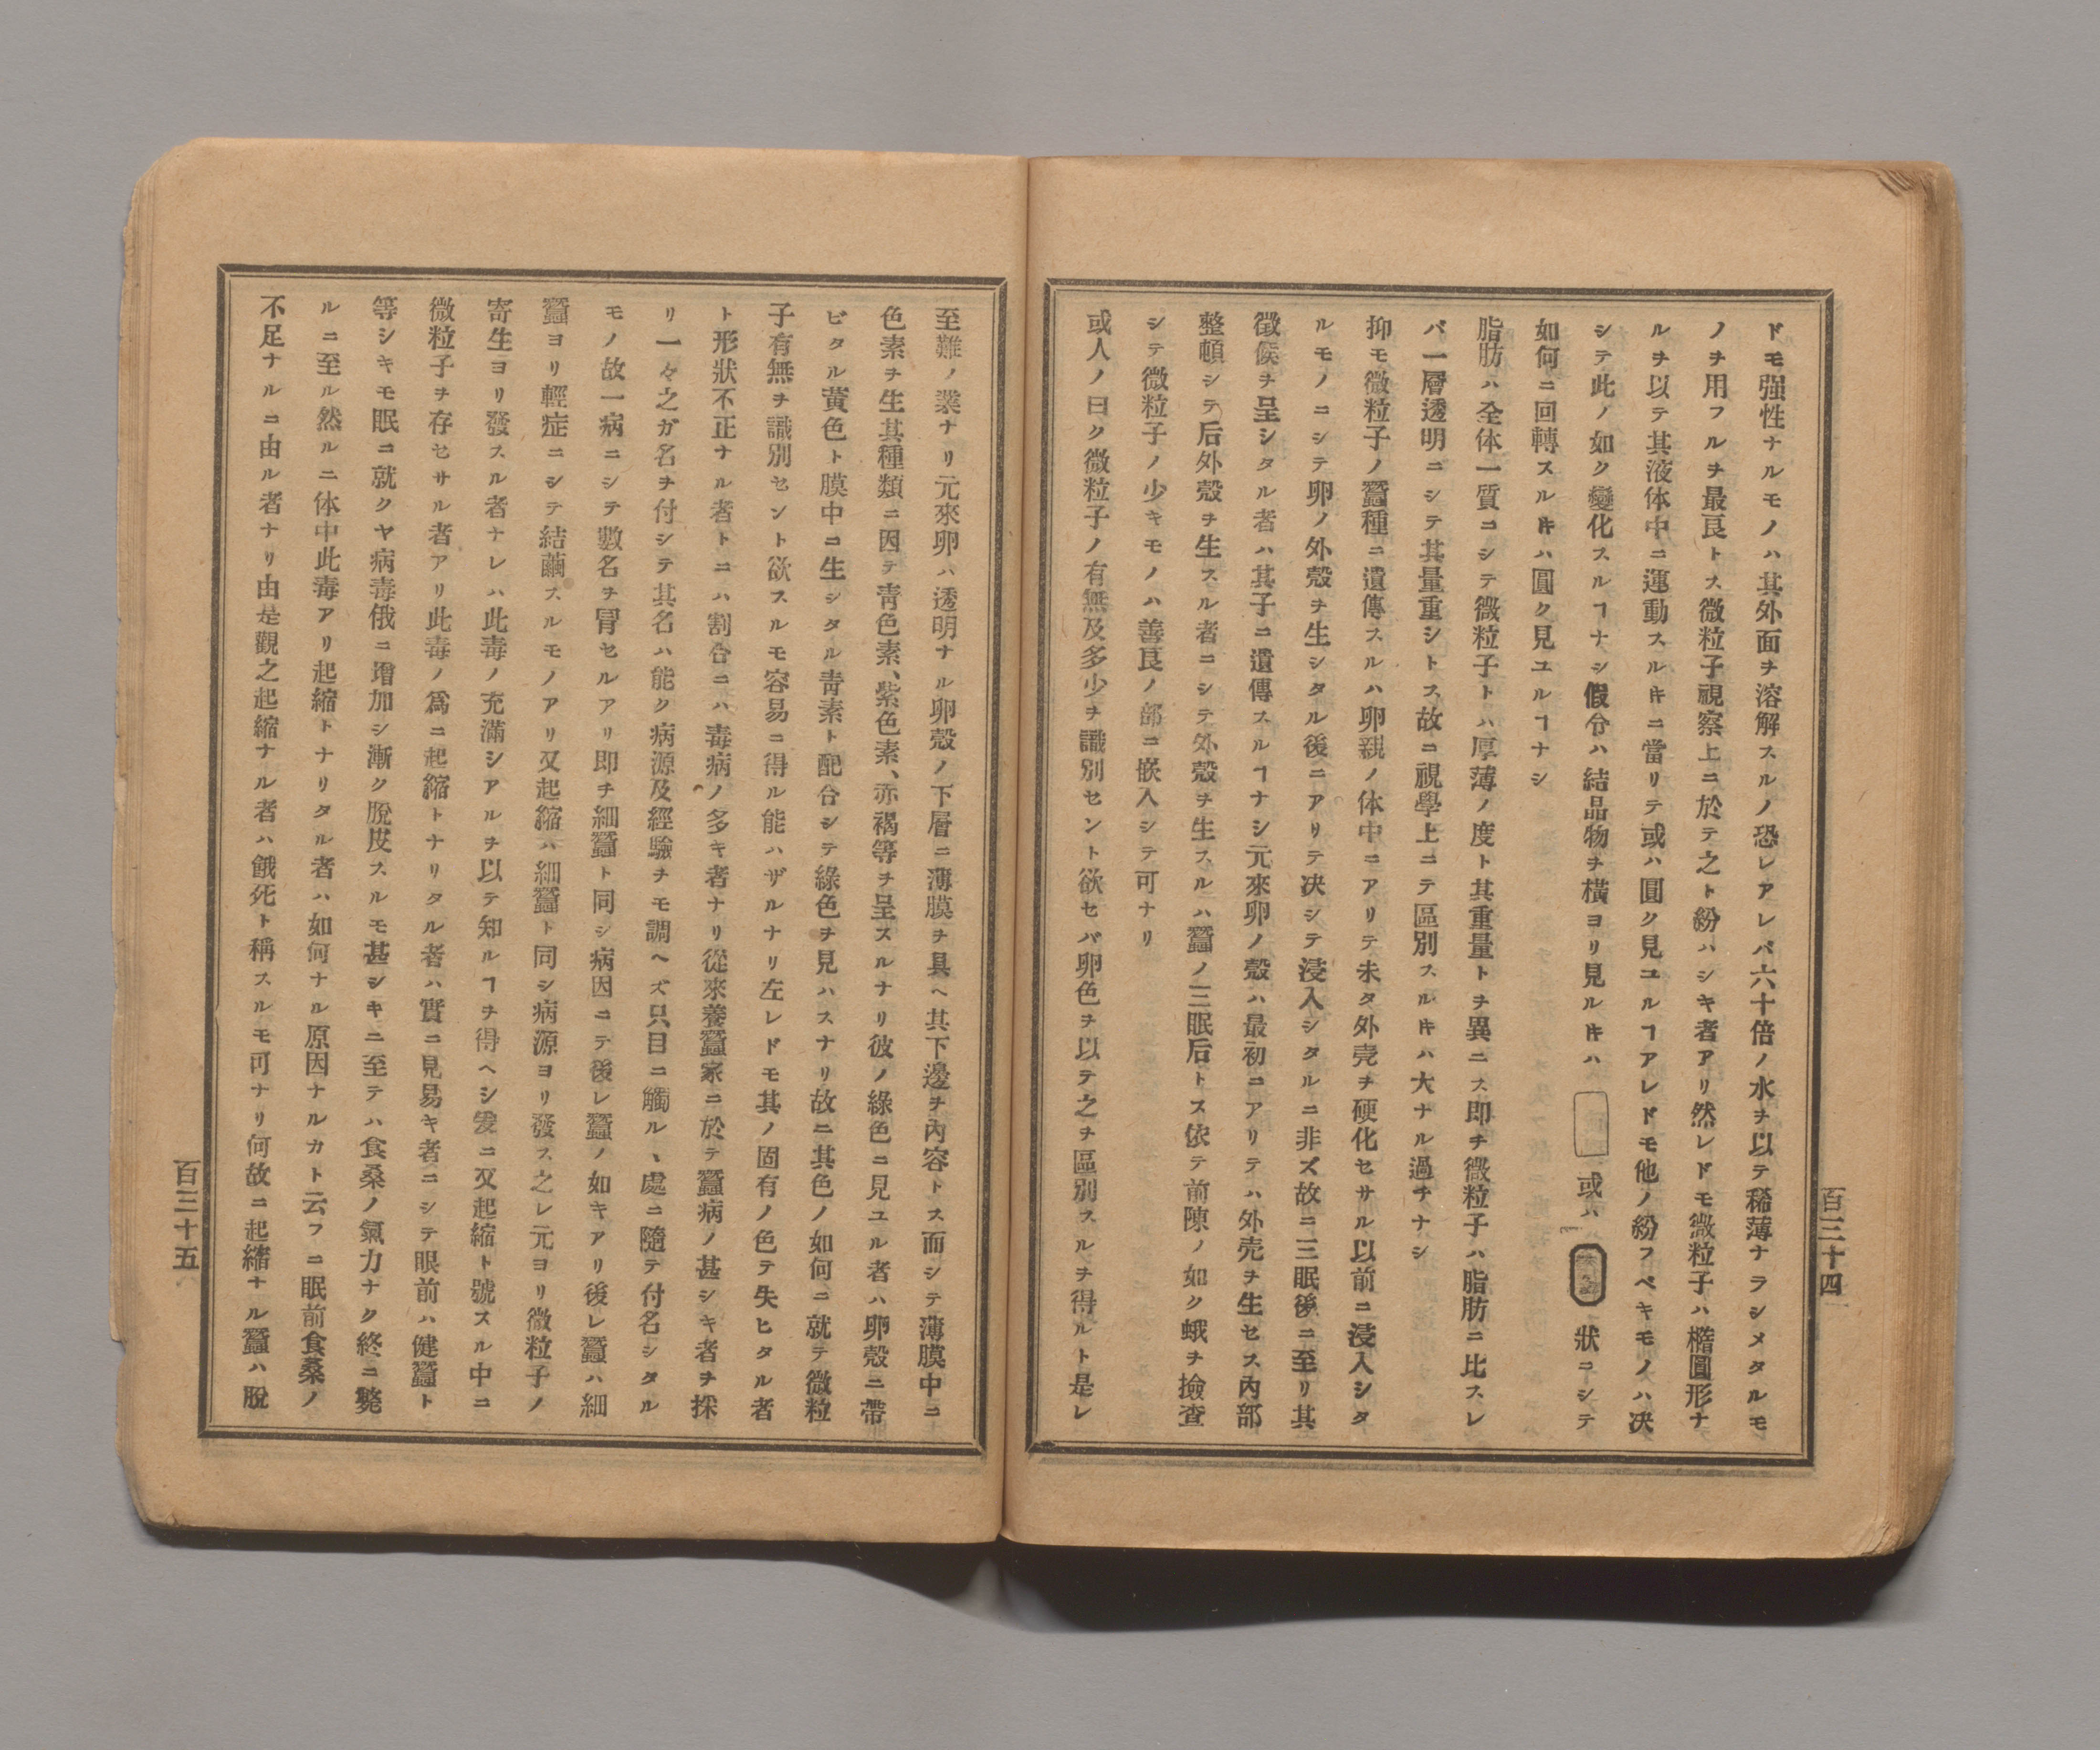 ドモ强性ナルモノハ其外面ヲ溶解スルノ恐レアレバ六十倍ノ水ヲ以テ稀薄ナラシメタルモ
ノヲ用フルヲ最良トス微粒子視察上ニ於テ之ト紛ハシキ者アリ然レドモ微粒子ハ橢圓形ナ
ルヲ以テ其液体中ニ運動スルキニ當リテ或ハ圓ク見ユルヿアレドモ他ノ紛フベキモノハ决
シテ此ノ如ク變化スルヿナシ假令ハ結晶物ヲ橫ヨリ見ルキハ 或ハ 狀ニシテ
如何ニ回轉スルキハ圓ク見ユルヿナシ
脂肪ハ全体一質ニシテ微粒子トハ厚薄ノ度ト其重量トヲ異ニス即チ微粒子ハ脂肪ニ比スレ
バ一層透明ニシテ其量重シトス故ニ視學上ニテ區別スルキハ大ナル過チナシ
抑モ微粒子ノ蠶種ニ遺傳スルハ卵親ノ体中ニアリテ未タ外壳ヲ硬化セサル以前ニ浸入シタ
ルモノニシテ卵ノ外殼ヲ生シタル後ニアリテ决シテ浸入シタルニ非ズ故ニ三眠後ニ至リ其
徵候ヲ呈シタル者ハ其子ニ遺傳スルヿナシ元來卵ノ殼ハ最初ニアリテハ外壳ヲ生セス內部
整頓シテ后外殼ヲ生スル者ニシテ外殼ヲ生スルハ蠶ノ三眠后トス依テ前陳ノ如ク蛾ヲ撿查
シテ微粒子ノ少キモノハ善良ノ部ニ嵌入シテ可ナリ
或人ノ曰ク微粒子ノ有無及多少ヲ識別セント欲セバ卵色ヲ以テ之ヲ區別スルヲ得ルト是レ
百三十四
至難ノ業ナリ元來卵ハ透明ナル卵殼ノ下層ニ薄膜ヲ具ヘ其下邊ヲ內容トス而シテ薄膜中ニ
色素ヲ生其種類ニ因テ靑色素、紫色素、亦褐等ヲ呈スルナリ彼ノ綠色ニ見ユル者ハ卵殼ニ帶
ビタル黃色ト膜中ニ生シタル靑素ト配合シテ綠色ヲ見ハスナリ故ニ其色ノ如何ニ就テ微粒
子有無ヲ識別セント欲スルモ容易ニ得ル能ハザルナリ左レドモ其ノ固有ノ色テ失ヒタル者
ト形狀不正ナル者トニハ割合ニハ毒病ノ多キ者ナリ從來養蠶家ニ於テ蠶病ノ甚シキ者ヲ採
リ一々之ガ名ヲ付シテ其名ハ能ク病源及經驗ヲモ調ヘズ只目ニ觸ル、處ニ隨テ付名シタル
モノ故一病ニシテ數名ヲ冐セルアリ即チ細蠶ト同シ病因ニテ後レ蠶ノ如キアリ後レ蠶ハ細
蠶ヨリ輕症ニシテ結繭スルモノアリ又起縮ハ細蠶ト同シ病源ヨリ發ス之レ元ヨリ微粒子ノ
寄生ヨリ發スル者ナレハ此毒ノ充滿シアルヲ以テ知ルヿヲ得ヘシ爰ニ又起縮ト號スル中ニ
微粒子ヲ存セサル者アリ此毒ノ爲ニ起縮トナリタル者ハ實ニ見易キ者ニシテ眼前ハ健蠶ト
等シキモ眠ニ就クヤ病毒俄ニ增加シ漸ク脫皮スルモ甚シキニ至テハ食桑ノ氣力ナク終ニ斃
ルニ至ル然ルニ体中此毒アリ起縮トナリタル者ハ如何ナル原因ナルカト云フニ眠前食桑ノ
不足ナルニ由ル者ナリ由是觀之起縮ナル者ハ餓死ト稱スルモ可ナリ何故ニ起縮ナル蠶ハ脫
百三十五